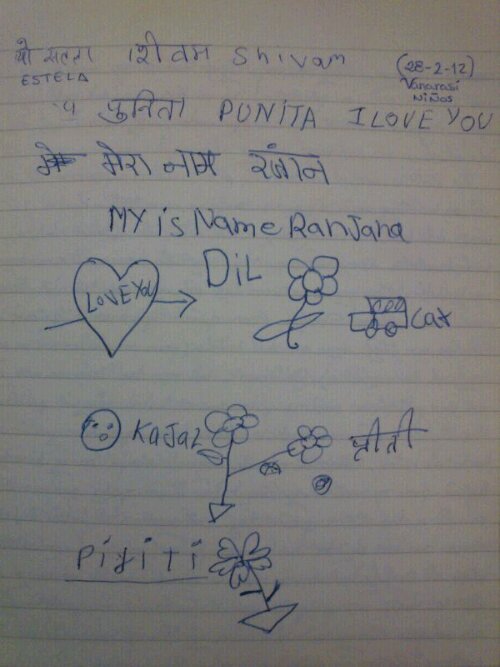 शिवम Shivam (28-2-12)
ESTELA Vanarasi
Niños
पुनिता PUNITA I LOVE YOU
मेरा नाम रंजान
MY is Name Ranjana
LOVE YOU DiL
Car
Kajal प्रीती
PiriTi